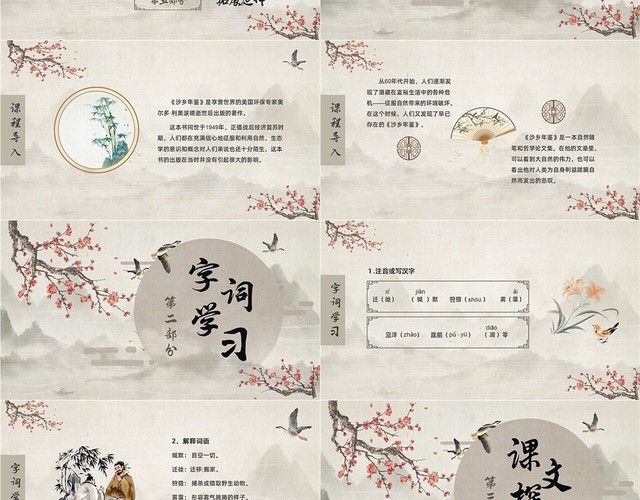 第五部分
拓展延伸
课程导入
《沙乡年鉴》是享誉世界的美国环保专家奥
尔多·利奥波德逝世后出版的著作。
这本书问世于1949年，正值战后经济复苏时
期，人们都在充满信心地征服和利用自然，生态
学的意识和概念对人们来说也还十分陌生，这本
书的出版在当时并没有引起很大的影响。
课程导入
从60年代开始，人们逐渐发
现了潜藏在富裕生活中的各种危
机——征服自然带来的环境破坏，在
这个时候，人们又发现了早已
存在的《沙乡年鉴》。
《沙乡年鉴》是一本自然随
笔和哲学论文集，在他的文章里，
可以看到大自然的伟力，也可以
看出他对人类为自身利益蹂躏自
然而发出的悲叹。
字词学习
第二部分
字词学习
1.注音或写汉字
xǐ jiān ǎi
迁（徙） （缄）默 狩猎（shòu） 雾（霭）
diāo
沼泽（zhǎo） 蹼（pǔ·yù） （凋）零
字词学
2、解释词语
缄默：目空一切。
迁徙：迁移;搬家。
狩猎：捕杀或猎取野生动物。
雾霭：形容雾气腾腾的样子。
课文探
第三